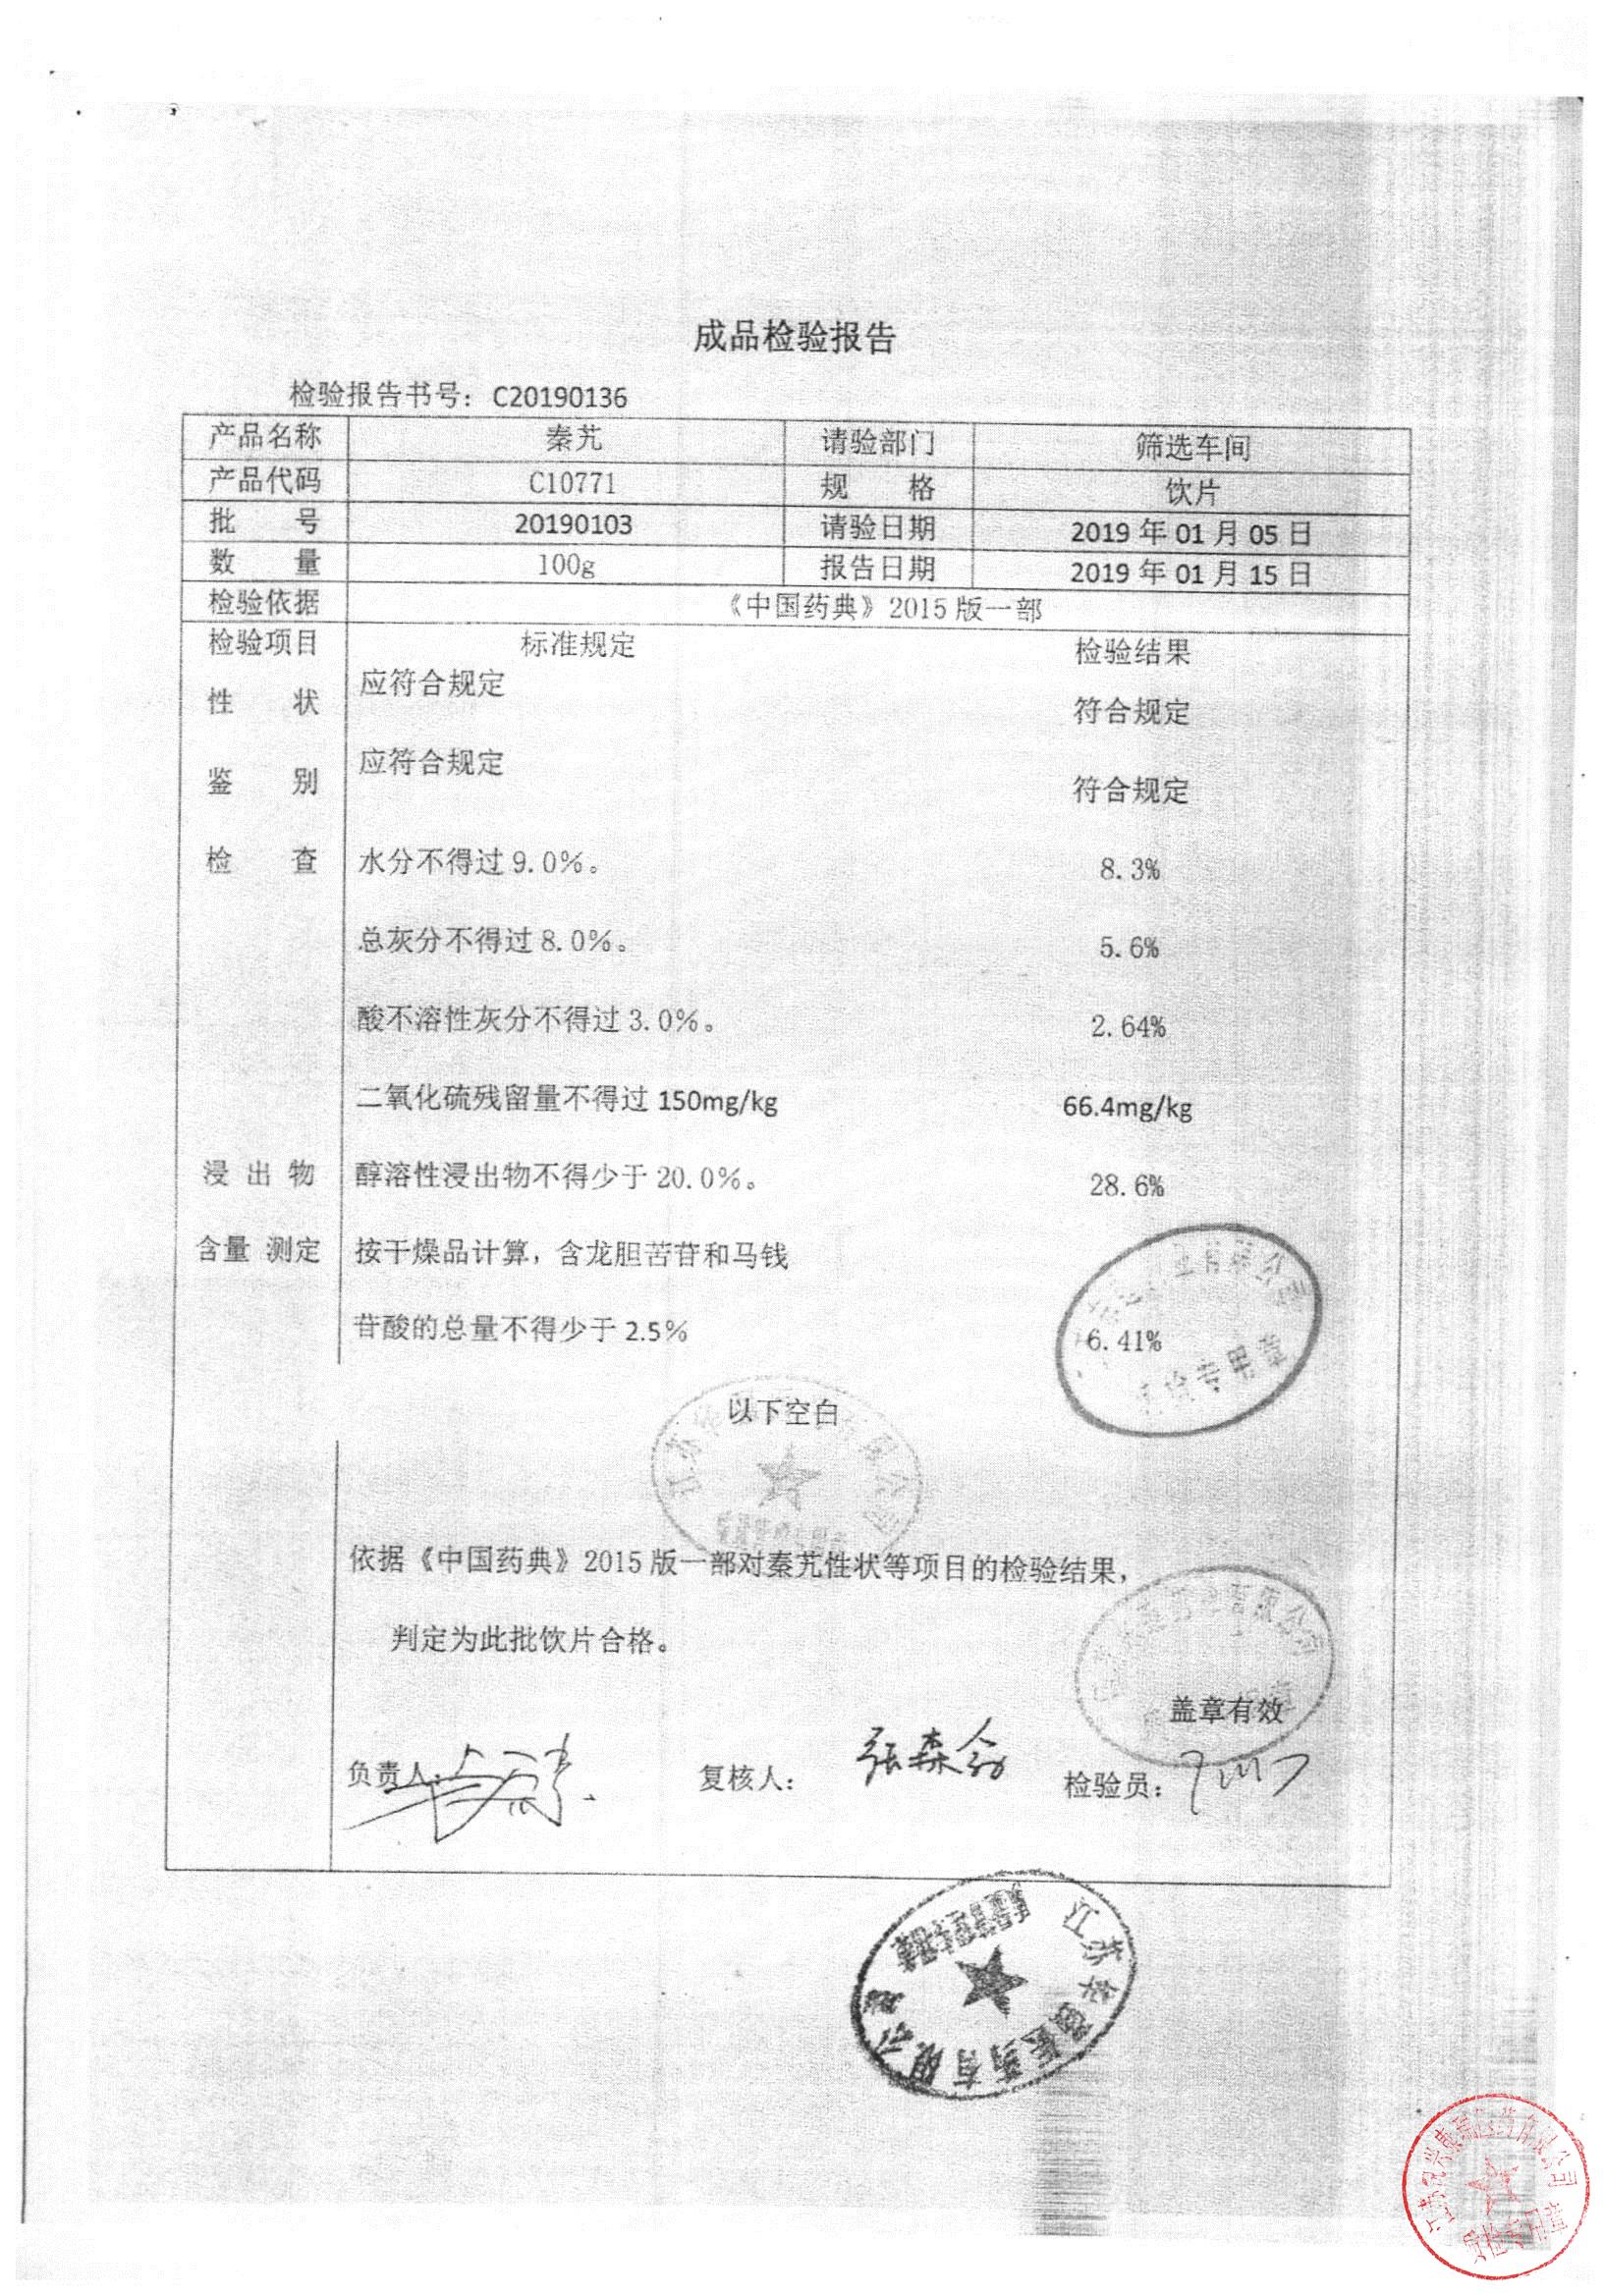 成品检验报告
检验报告书号：C20190136
产品名称 秦艽 请验部门 筛选车间
产品代码 C10771 规 格 饮片
批 号 20190103 请验日期 2019 年 01 月 05 日
数 量 100g 报告日期 2019 年 01 月 15 日
检验依据 《中国药典》2015 版一部
检验项目 标准规定 检验结果
性 状 应符合规定 符合规定
鉴 别 应符合规定 符合规定
检 查 水分不得过 9.0%。 8.3%
总灰分不得过 8.0%。 5.6%
酸不溶性灰分不得过 3.0%。 2.64%
二氧化硫残留量不得过 150mg/kg 66.4mg/kg
浸 出 物 醇溶性浸出物不得少于 20.0%。 28.6%
含量 测定 按干燥品计算，含龙胆苦苷和马钱
苷酸的总量不得少于 2.5% 6.41%
专用章
以下空白
依据《中国药典》2015 版一部对秦艽性状等项目的检验结果，
判定为此批饮片合格。
盖章有效
负责人：
复核人： 张森
检验员：